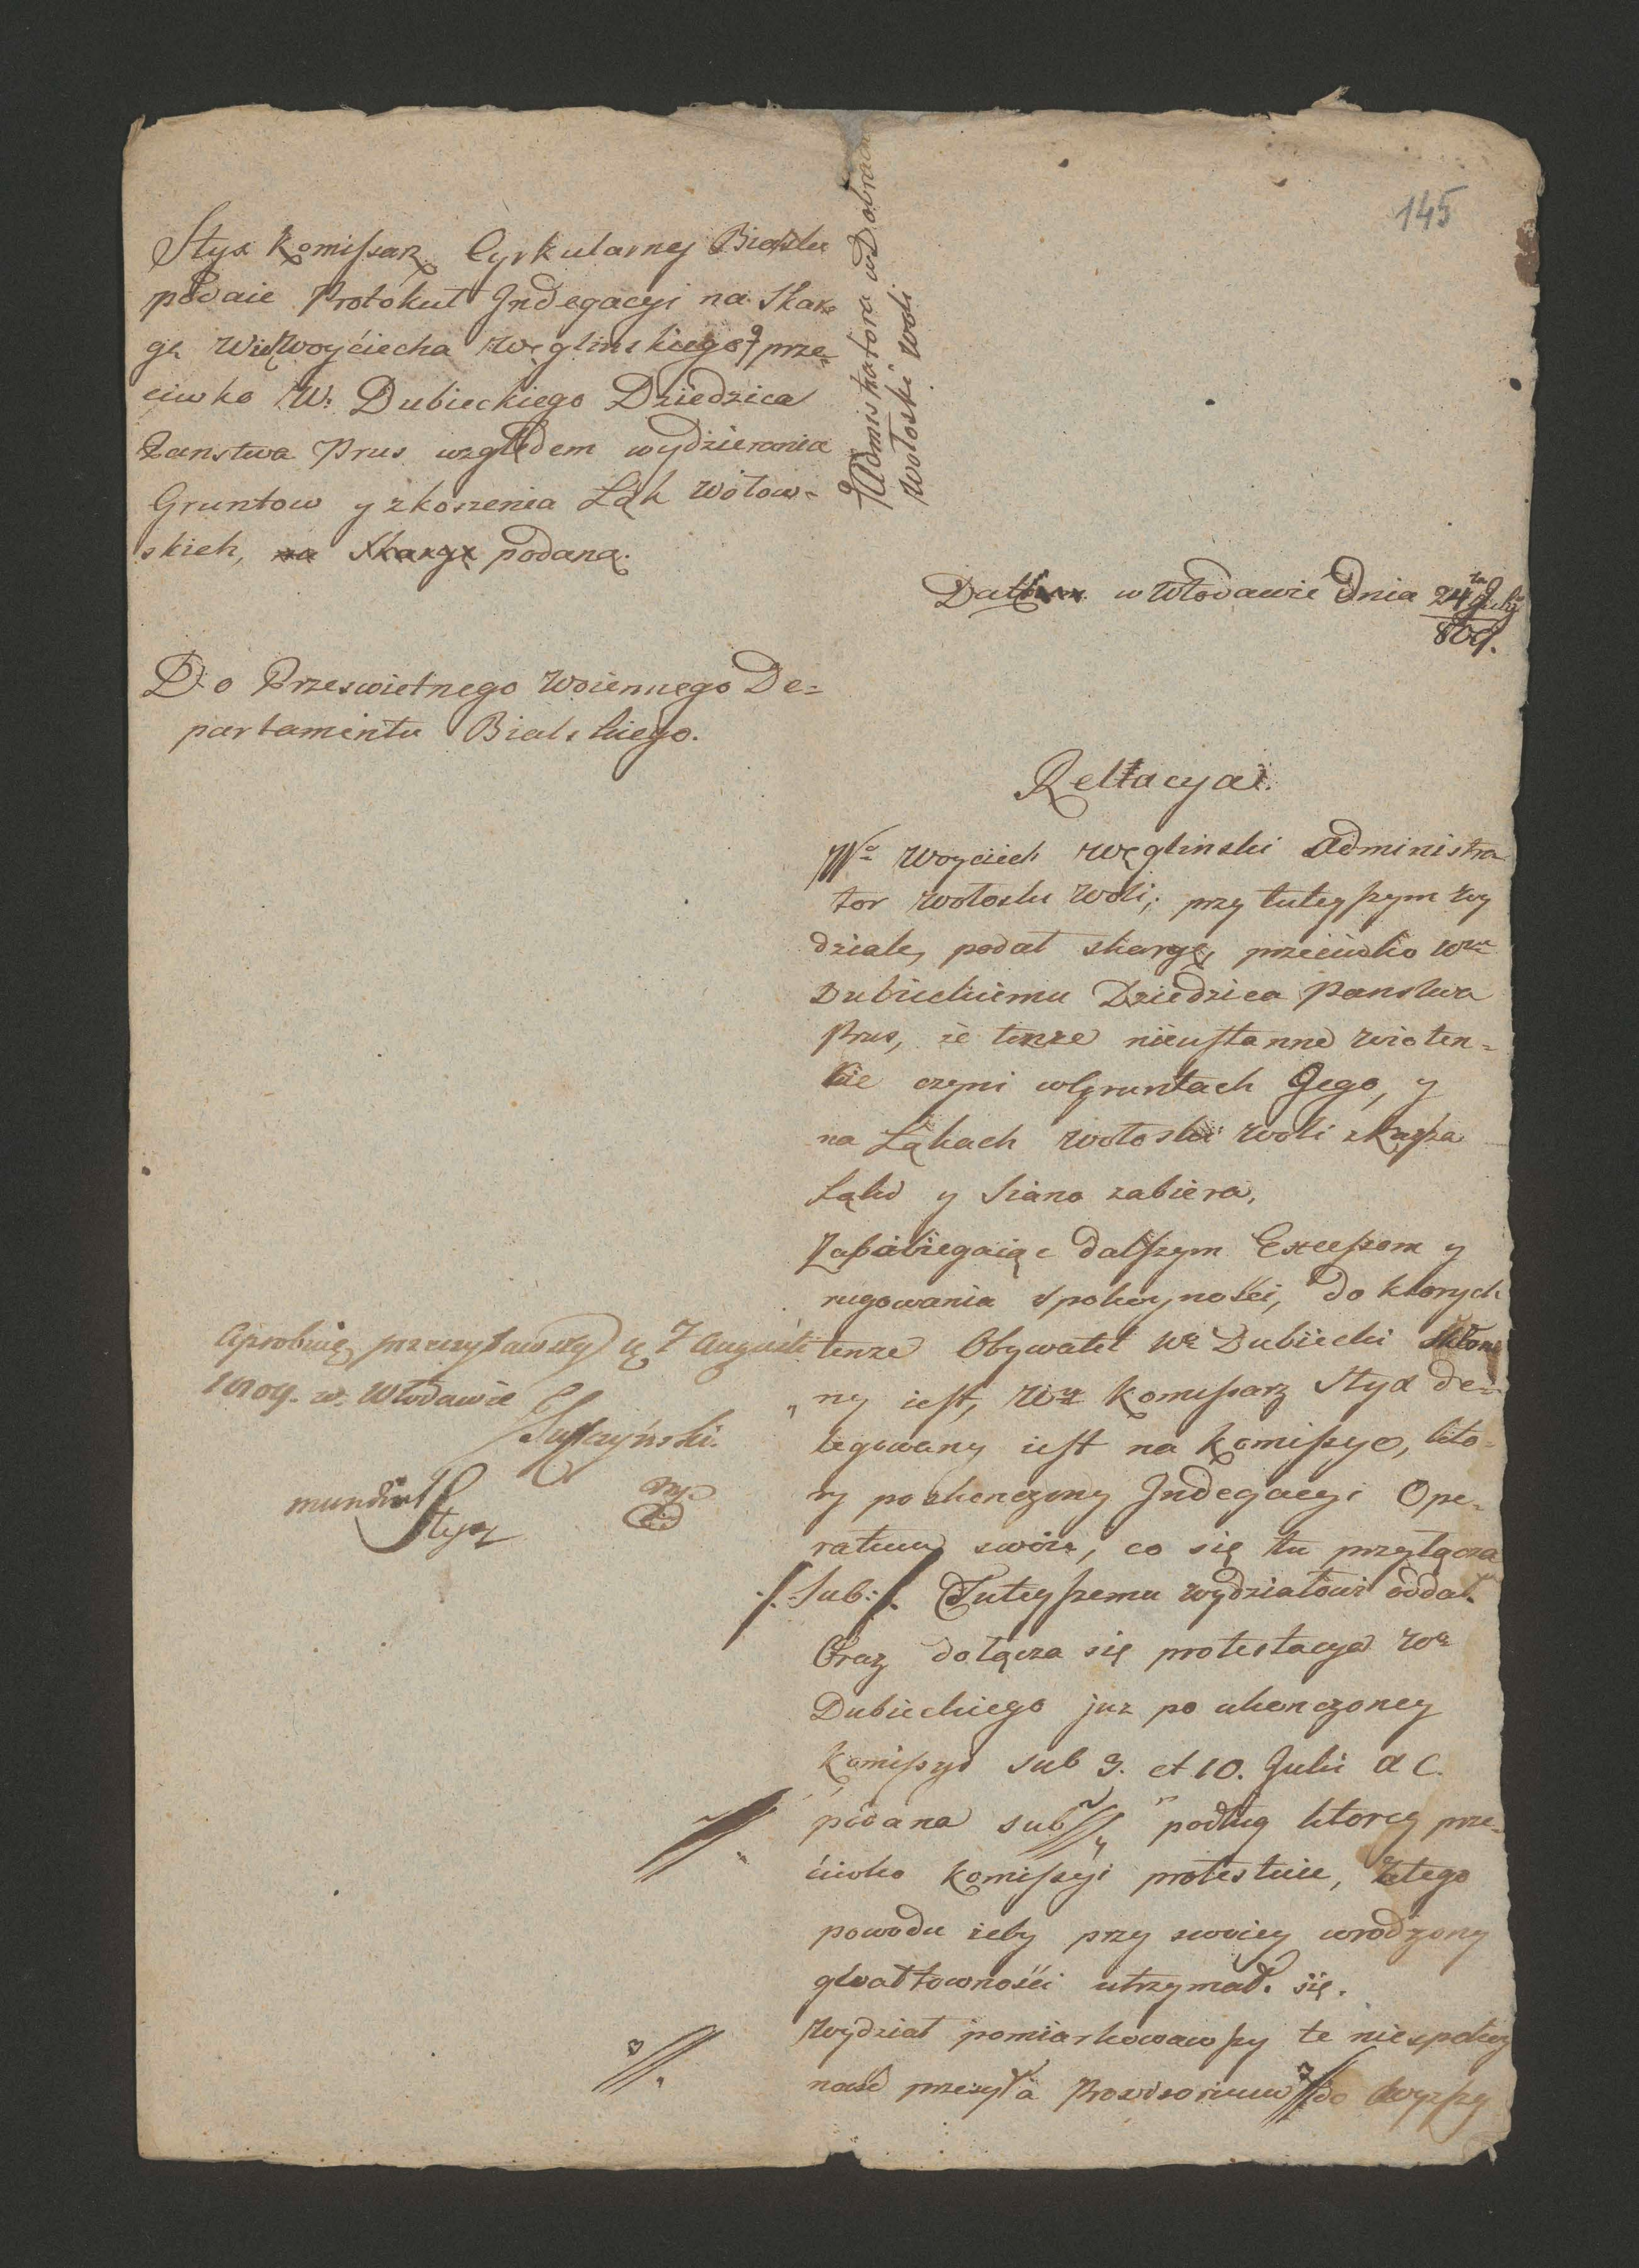 145
Styx Komissarz Cyrkularnej Bialski
podaie Protokuł Indegacyi na Skar„
gę Wie. Woyciecha Węglinskiego prze„
ciwko W: Dubieckiego Dziedzica
Panstwa Prus względem wydzierania
Gruntow y zkoszenia Łąk Wołow„
skich, na Skargę podaną.
Administratora w Dobrach
Wołoski Woli
Datum w Włodawie dnia 24ta July
809.
Do Przeswietnego Woiennego De=
partamentu Bialskiego.
Rellacya.
We Woyciech Węglinski Administra
tor Wołoski Woli, przy tuteyszym Wy
dziale, podał skargę, przeciwko Wmu
Dubieckiemu Dziedzica Panstwa
Prus, że tenże nieustanne Wiolen=
cie czyni w Gruntach Jego, y
na Łąkach Wołoski Woli zkasza
Łąki y Siano zabiera,
Zapabiegaiąc dalszym Excessom y
rugowania spokoyności, do ktorych
tenze Obywatel We Dubiecki skłon
ny iest, Wny Komissarz Styx de=
legowany iest na Komissye, kto=
ry po skonczony Indegacyi Ope=
ratum swoie, co się tu przyłącza
/.Sub:/. Tuteyszemu Wydziałowi oddał.
Oraz dołącza się protestacya We
Dubieckiego juz po ukonczoney
Komissyi sub 3. et 10. Julii a C.
podana sub //. podług ktorey prze„
ciwko Komissyi protestuie, z tego
powodu zeby przy swoiey wrodzony
gwałtowności utrzymał się.
Wydział pomiarkowawszy te niespokoy
ność przesyła Provisorium //. do Wyzszy
Aprobuię przeczytawszy ią 7 Augusti
1809. w Włodawie
mundi Styx